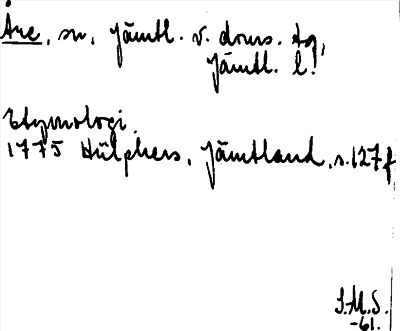 Åre, sn, Jämtl. v. doms. tg,
Jämtl. l.
Etymologi.
1775 Hülphers, Jämtland, s. 127 f
S.M.S.
-61.